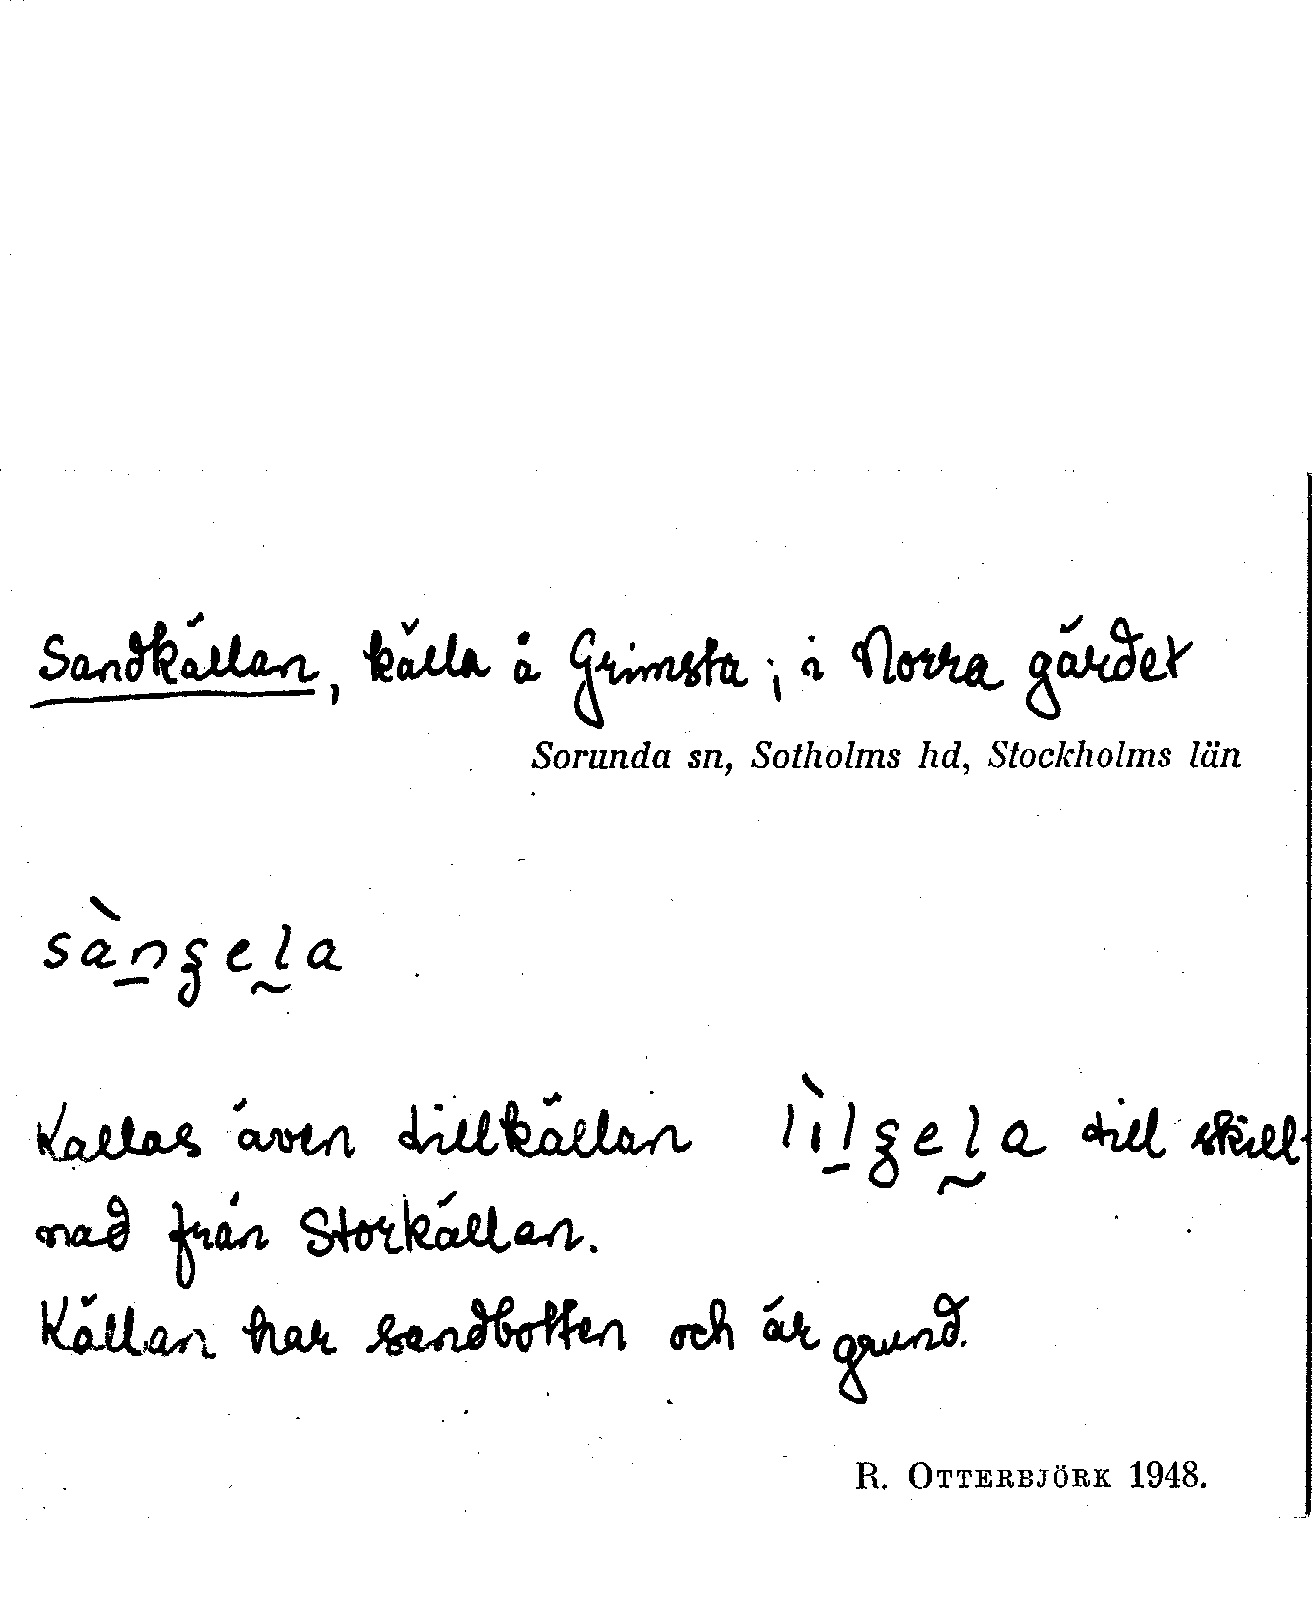 Sandkällan, källa å Grimsta; i Norra gärdet
Sorunda sn, Sotholms hd, Stockholms län
sàngela
Kallas även Lillkällan lìlgela till skill-
nad från Storkällan.
Källan har sandbotten och är grund.
R. OTTERBJÖRK 1948.